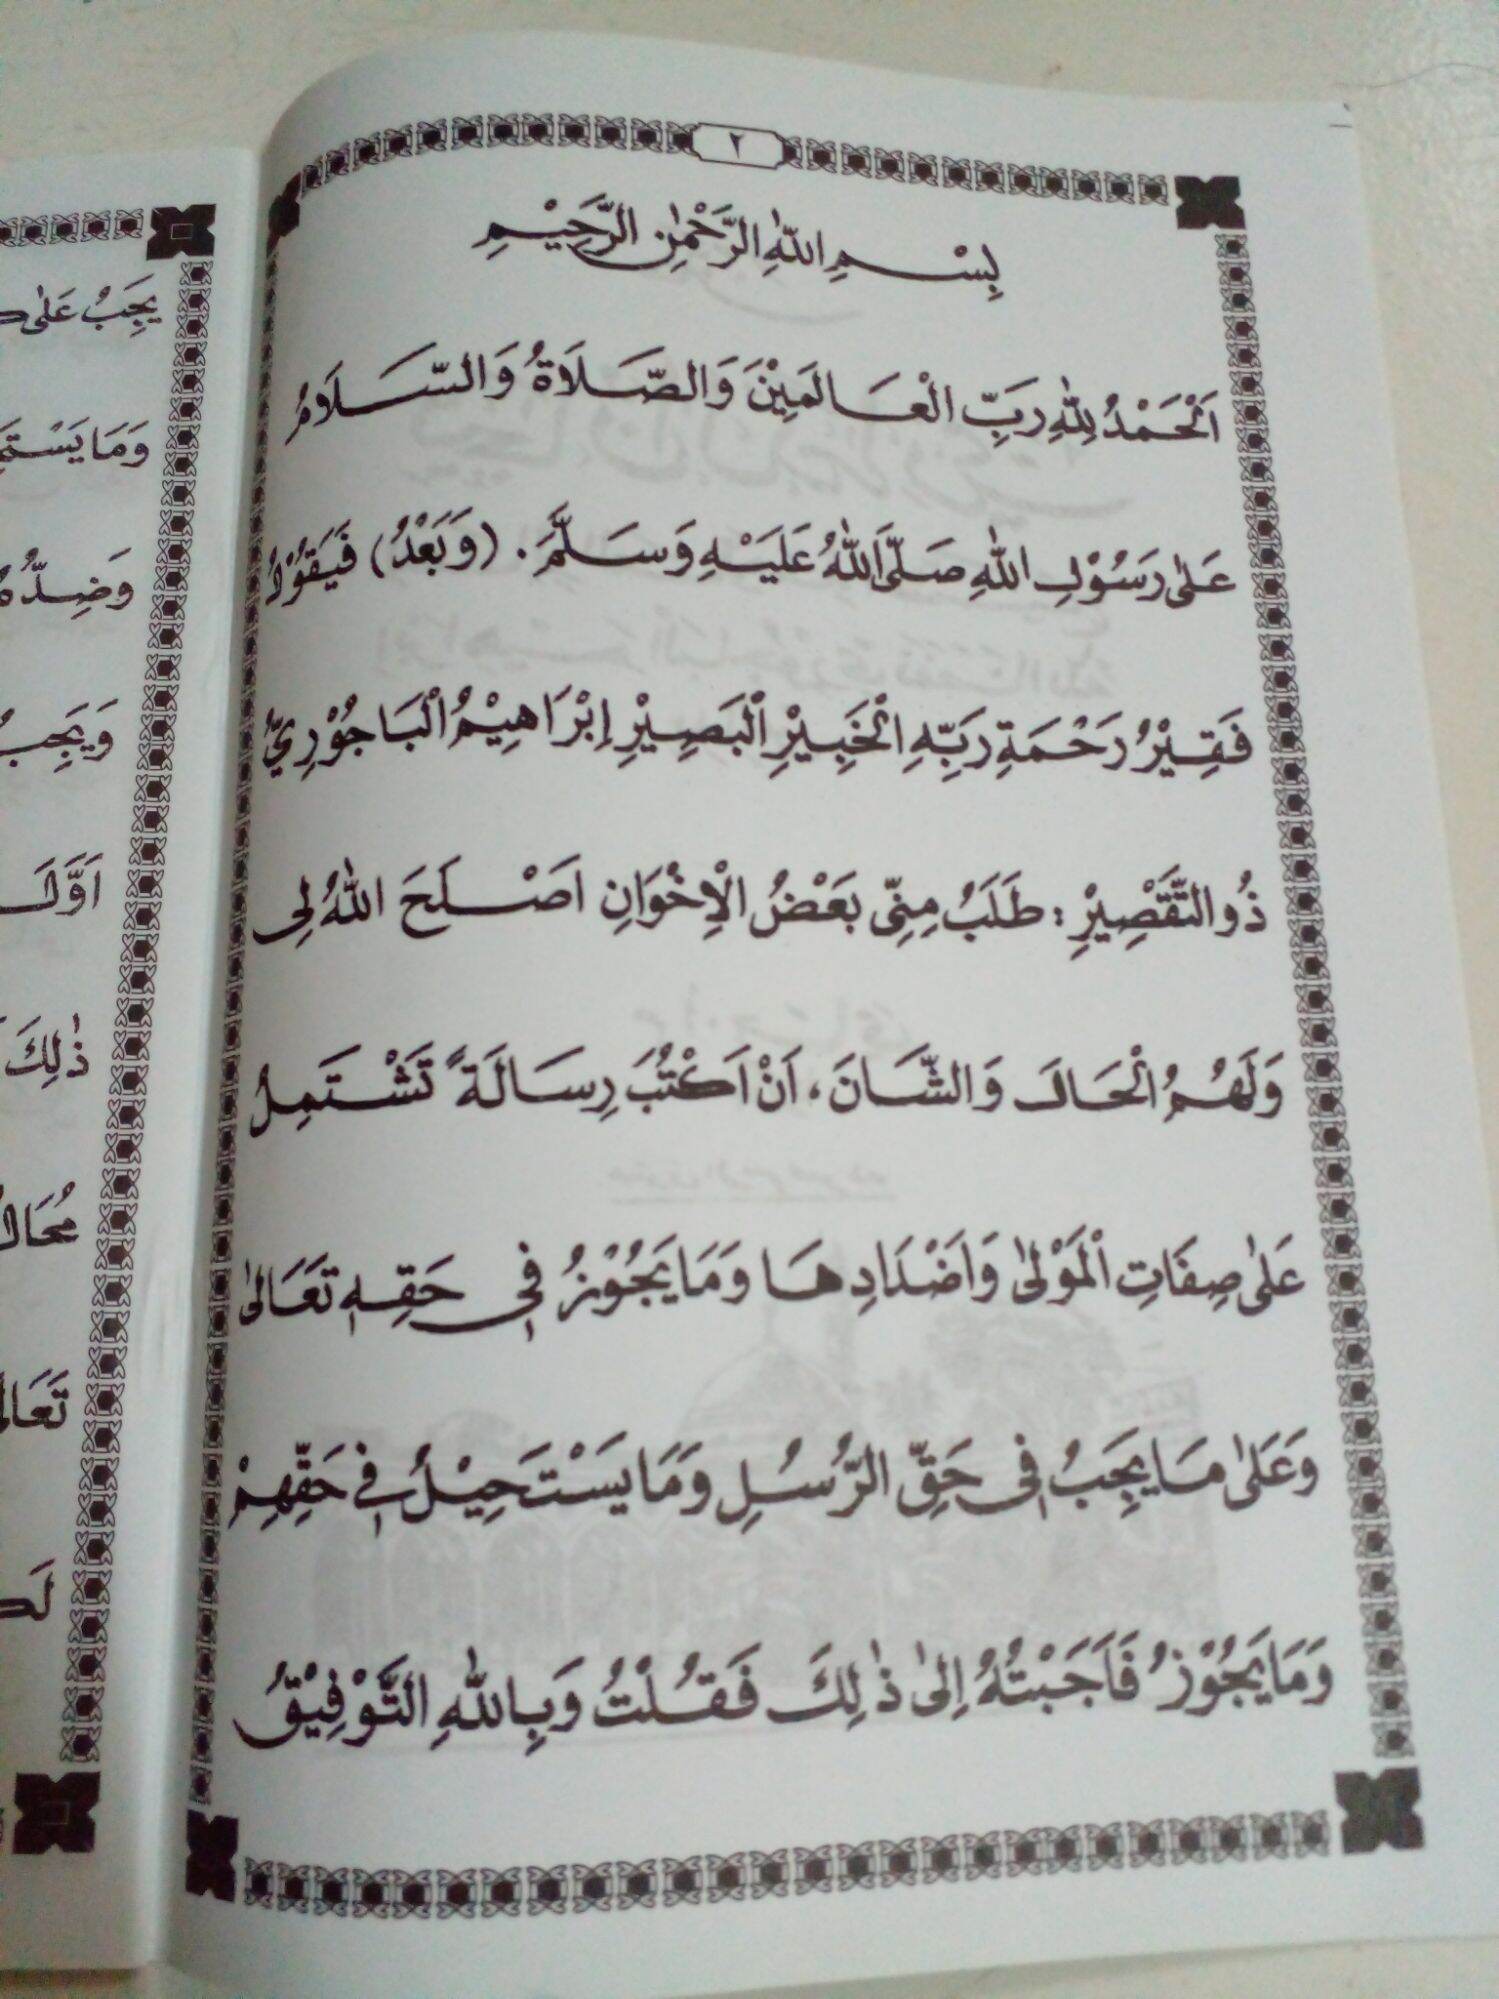 ٢
بِسْمِ اللّٰهِ الرَّحْمٰنِ الرَّحِيْمِ
اَلْحَمْدُ لِلّٰهِ رَبِّ الْعَالَمِيْنَ وَالصَّلَاةُ وَالسَّلَامُ
عَلٰى رَسُوْلِ اللّٰهِ صَلَّى اللّٰهُ عَلَيْهِ وَسَلَّمَ. (وَبَعْدُ) فَيَقُوْلُ
فَقِيْرُ رَحْمَةِ رَبِّهِ الْخَبِيْرِ الْبَصِيْرِ اِبْرَاهِيْمُ الْبَاجُوْرِيُّ
ذُو التَّقْصِيْرِ: طَلَبُ مِنِّى بَعْضُ الْاِخْوَانِ اَصْلَحَ اللّٰهُ لِى
وَلَهُمُ الْحَالَ وَالشَّانَ، اَنْ اَكْتُبَ رِسَالَةً تَشْتَمِلُ
عَلٰى صِفَاتِ الْمَوْلٰى وَاَضْدَادِهَا وَمَا يَجُوْزُ فِى حَقِهِ تَعَالٰى
وَعَلٰى مَا يَجِبُ فِى حَقِّ الرُّسُلِ وَمَا يَسْتَحِيْلُ فِى حَقِّهِمْ
وَمَا يَجُوْزُ فَاَجَبْتُهُ اِلٰى ذٰلِكَ فَقُلْتُ وَبِاللّٰهِ التَّوْفِيْقُ
يَجِبُ عَلٰى
وَمَا
وَضِدُّهُ
وَيَجِبُ
ذٰلِكَ